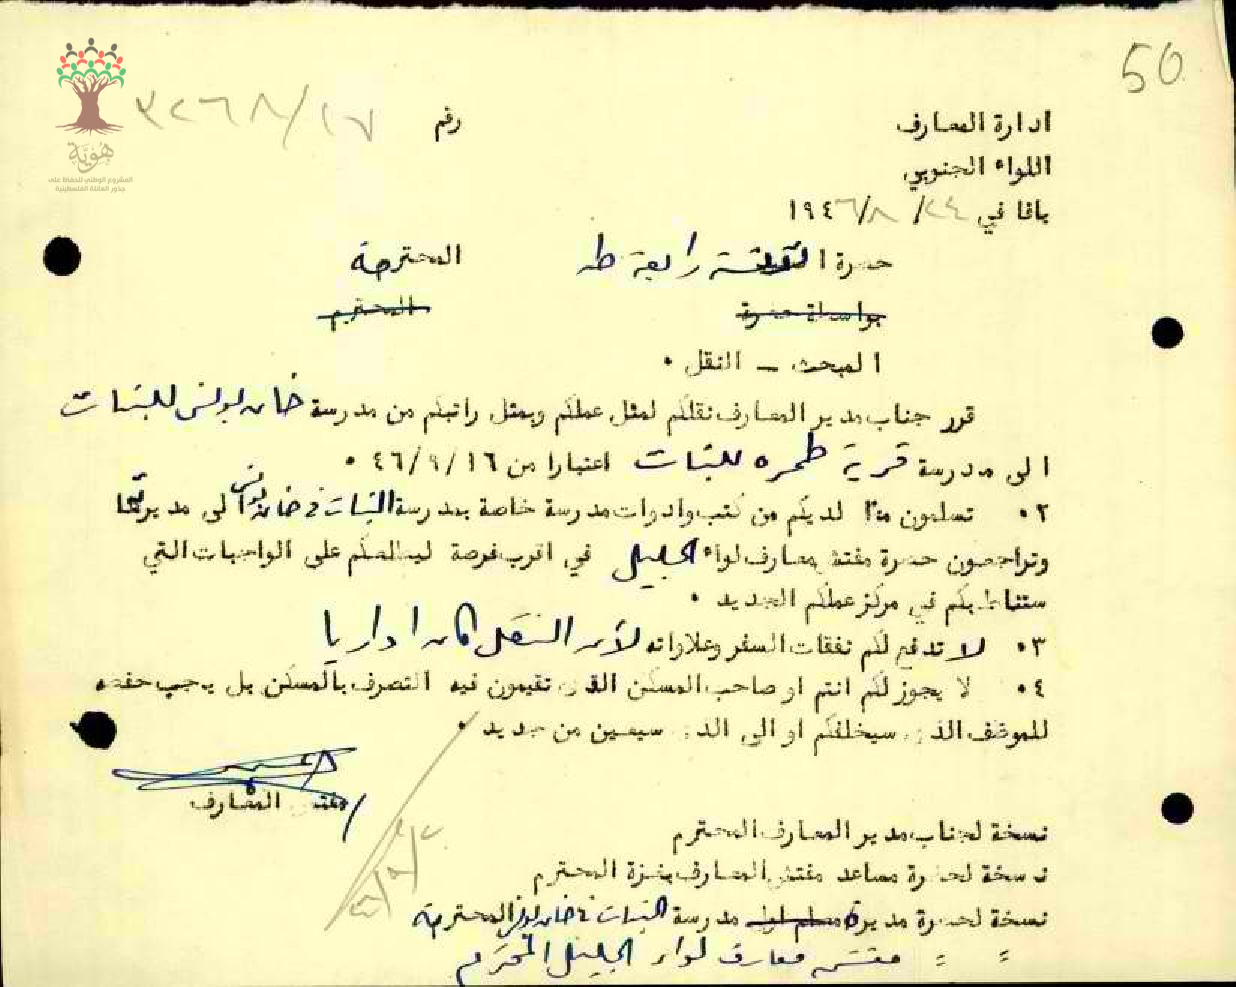 50
هوية
المشروع الوطني للحفاظ على
جذور العائلة الفلسطينية
ادارة المعارف
رقم ٣٢٦٨/١٧
اللواء الجنوبي
يافا في ٢٤/٨/١٩٤٦
حضرة الآنسة رابعة طه المحترمة
بواسطة حضرة المحترم
المبحث - النقل ٠
قرر جناب مدير المعارف نقلكم لمثل عملكم وبمثل راتبكم من مدرسة خان يونس للبنات
الى مدرسة قرية طمره للبنات اعتبارا من ٤٦/٩/١٦ ٠
٢٠ تسلمون ما لديكم من كتب وادوات مدرسة خاصة بمدرسة البنات في خان يونس الى مديرتها
وتراجعون حضرة مفتش معارف لواء الجليل في اقرب فرصة ليطلعكم على الواجبات التي
ستناط بكم في مركز عملكم الجديد ٠
٣٠ لا تدفع لكم نفقات السفر وعلاواته لأن النقل كان اداريا
٤٠ لا يجوز لكم انتم او صاحب المسكن الذي تقيمون فيه التصرف بالمسكن بل يجب حفظه
للموظف الذي سيخلفكم او الى الذي سيعين من جديد ٠
مفتش المعارف
نسخة لجناب مدير المعارف المحترم
نسخة لحضرة مساعد مفتش المعارف بغزة المحترم
نسخة لحضرة مديرة مدرسة البنات في خان يونس المحترمة
= = مفتش معارف لواء الجليل المحترم